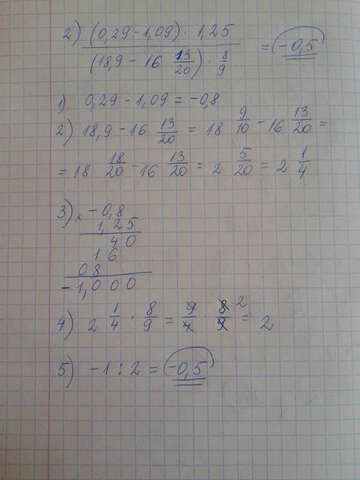 2) (0,29 - 1,09) · 1,25
(18,9 - 16 13/20) · 8/9 = -0,5
1) 0,29 - 1,09 = -0,8
2) 18,9 - 16 13/20 = 18 9/10 - 16 13/20 =
= 18 18/20 - 16 13/20 = 2 5/20 = 2 1/4
3) × -0,8
1,25
40
16
08
-1,000
4) 2 1/4 · 8/9 = 9/4 · 8/9 2 = 2
5) -1 : 2 = -0,5